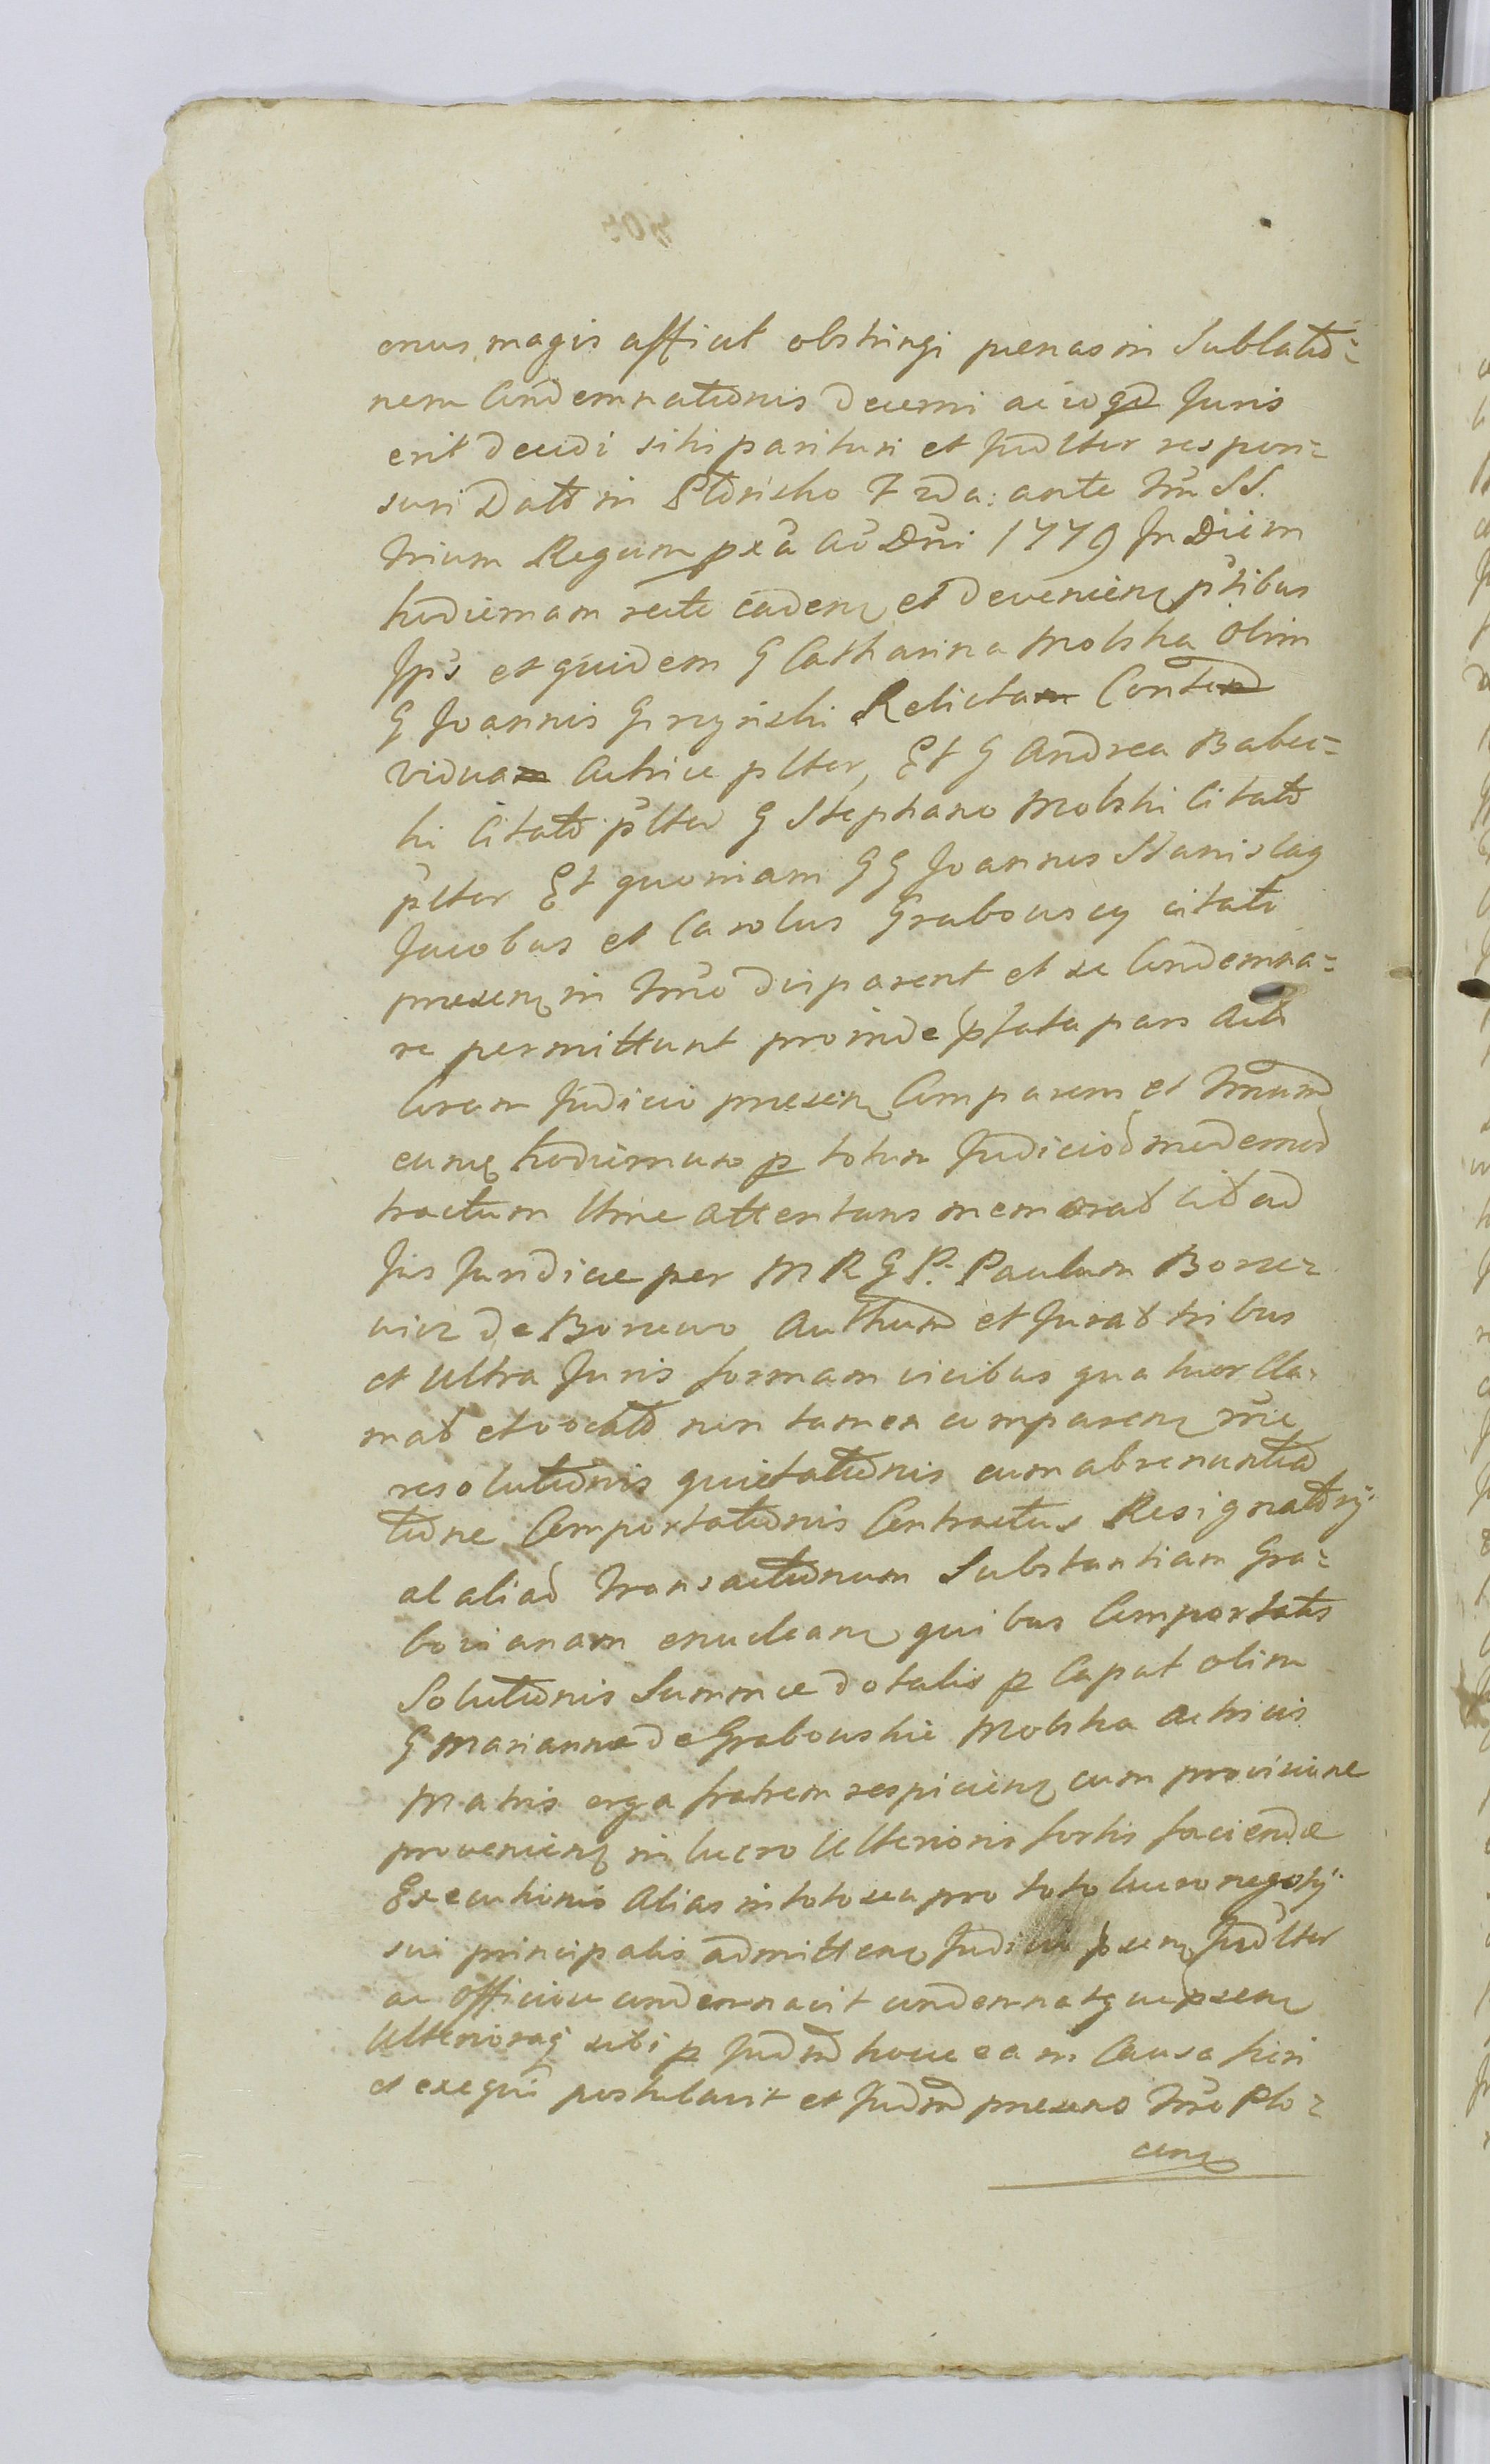 onus magis afficit obstringi pænas in Sublatio-
nem Condemnationis decerni ac id qd Juris
erit decidi sibi parituri et Judlter respon-
suri Datt in Płońsko F 2da: ante Fm SS.
Trium Regum pxa Ao Dni 1779 In Diem
hodiernam recte caden et devenien ptibus
Ipis et quidem G Catharina Molska Olim
G Joannis Gizyński Relicta
vidua Actrice plter, Et G Andrea Babec-
ki Citato plter G Stephano Molski Citato
plter Et quoniam GG Joannes Stanislaus
Jacobus et Carolus Grabouscy citati
presen in Tmo disparent et se Condemna-
re permittunt proinde pfata pars Act
Coram Judicio presen Comparens et Tmum
eunq hodiernum p totum Judicior modernor
tractum Ltme attentans memorat cit ad
Jus Juridice per M R G P. Paulum Bonie-
wicz de Boniewo Authum et Jurat tribus
et Ultra Juris formam vicibus quatuor Cla-
mat et vocat non tamen comparen rne
resolutionis quietationis cum abrenuntia
tione Comportationis Contractus Resignatorij
al aliar Transactionum Substantiam Gra-
bovianam enuclean quibus Comportatis
Solutionis Summæ dotalis p Caput olim
G Marianna de Grabouskie Molska Actricis
Matris erga fratrem respicien cum provisione
provenien in lucro Ulterioris fortis faciendæ
Executionis Alias in toto seu pro toto lucro negotij
sui principalis admitten Judicii psen Judlter
ac Officiose condemnavit condemnatque psen
Ulterioraq sibi p Judm hocce ea in Causa fieri
et exequi postulavit et Judm presens Tmo Plo-
cen